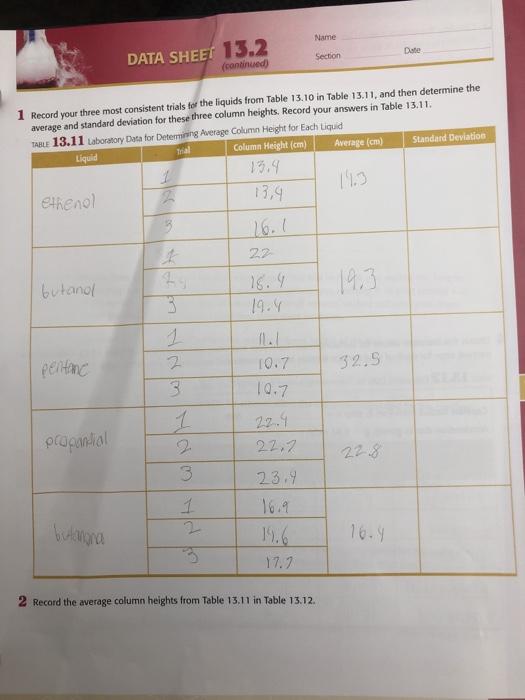 DATA SHEET 13.2
(continued)
Name
Section Date
1 Record your three most consistent trials for the liquids from Table 13.10 in Table 13.11, and then determine the
average and standard deviation for these three column heights. Record your answers in Table 13.11.
TABLE 13.11 Laboratory Data for Determining Average Column Height for Each Liquid
Liquid Trial Column Height (cm) Average (cm) Standard Deviation
ethenol 1 13.4 14.3
2 13,4
3 16.1
butanol 1 22 19.3
2 16.4
3 19.4
pentane 1 11.1 32.5
2 10.7
3 10.7
1 22.4 22.8
2 22.7
3 23.4
1 16.9 16.4
2 14.6
3 17.7
2 Record the average column heights from Table 13.11 in Table 13.12.